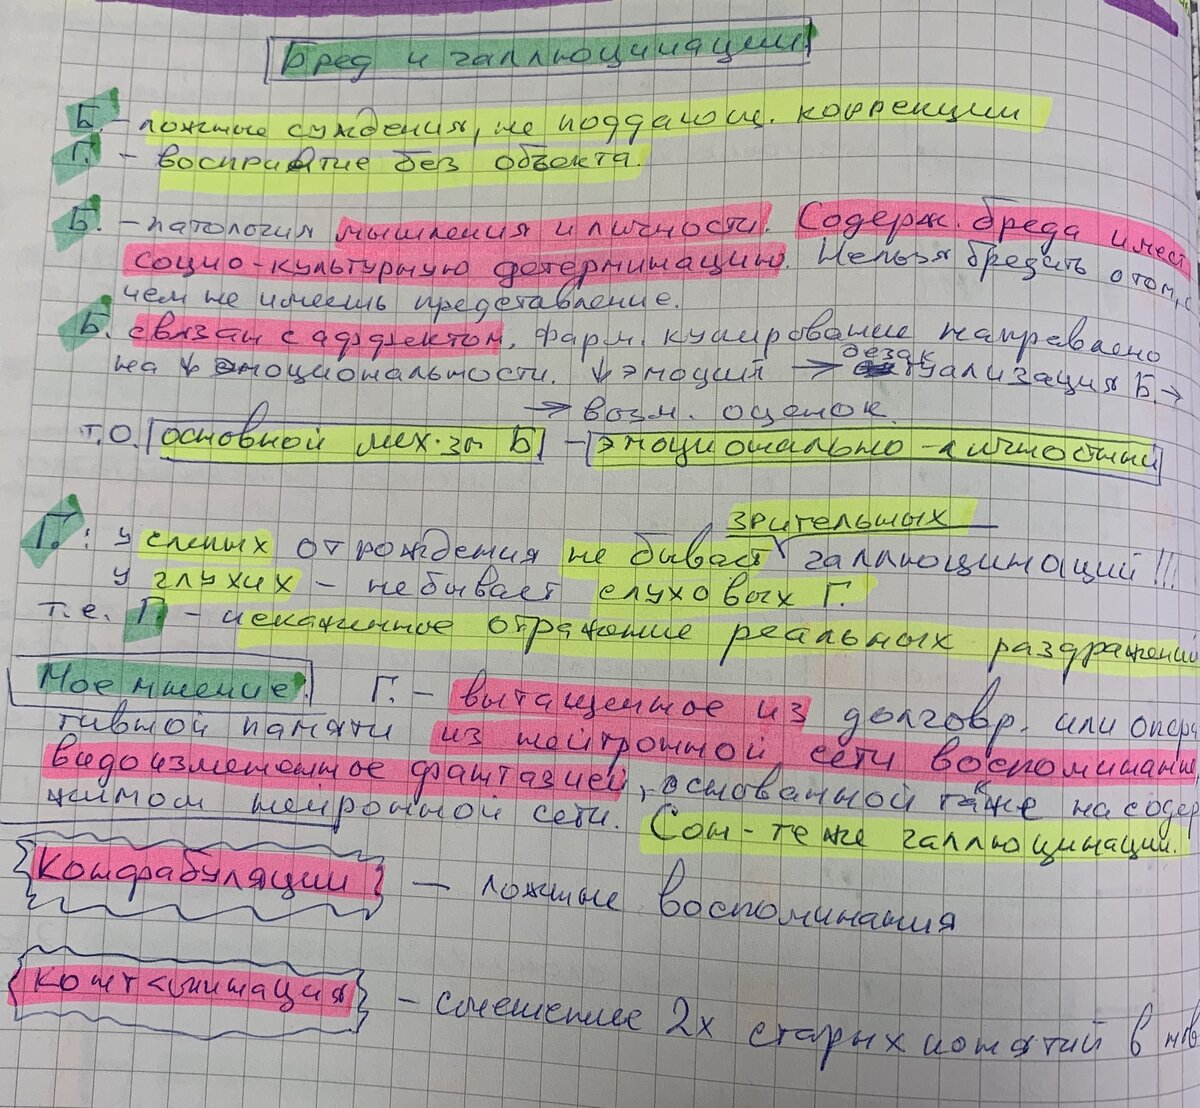 Бред и галлюцинации
Б. – ложные суждения, не поддающ. коррекции
Г. – восприятие без объекта.
Б. – патология мышления и личности. Содерж. бреда имеет
социо-культурную детерминацию. Нельзя бредить о том, о
чем не имеешь представление.
Б. связан с аффектом. Фарм. купирование направлено
на ↓ эмоциональности. ↓ эмоций → дезактуализация Б. →
→ возм. оценок
т.о. основной мех-зм Б – эмоционально-личностный
зрительных
Г.: у слепых от рождения не бывает галлюцинаций!!!
У глухих – не бывает слуховых Г.
т.е. Г – искаженное отражение реальных раздражений
Мое мнение. Г. – вытащенное из долговр. или опера
тивной памяти из нейтронной сети воспоминание
видоизмененное фантазией, основанной также на содер
жимом нейронной сети. Сон – те же галлюцинации.
Конфабуляции – ложные воспоминания
контаминация – смешение 2х старых понятий в нов